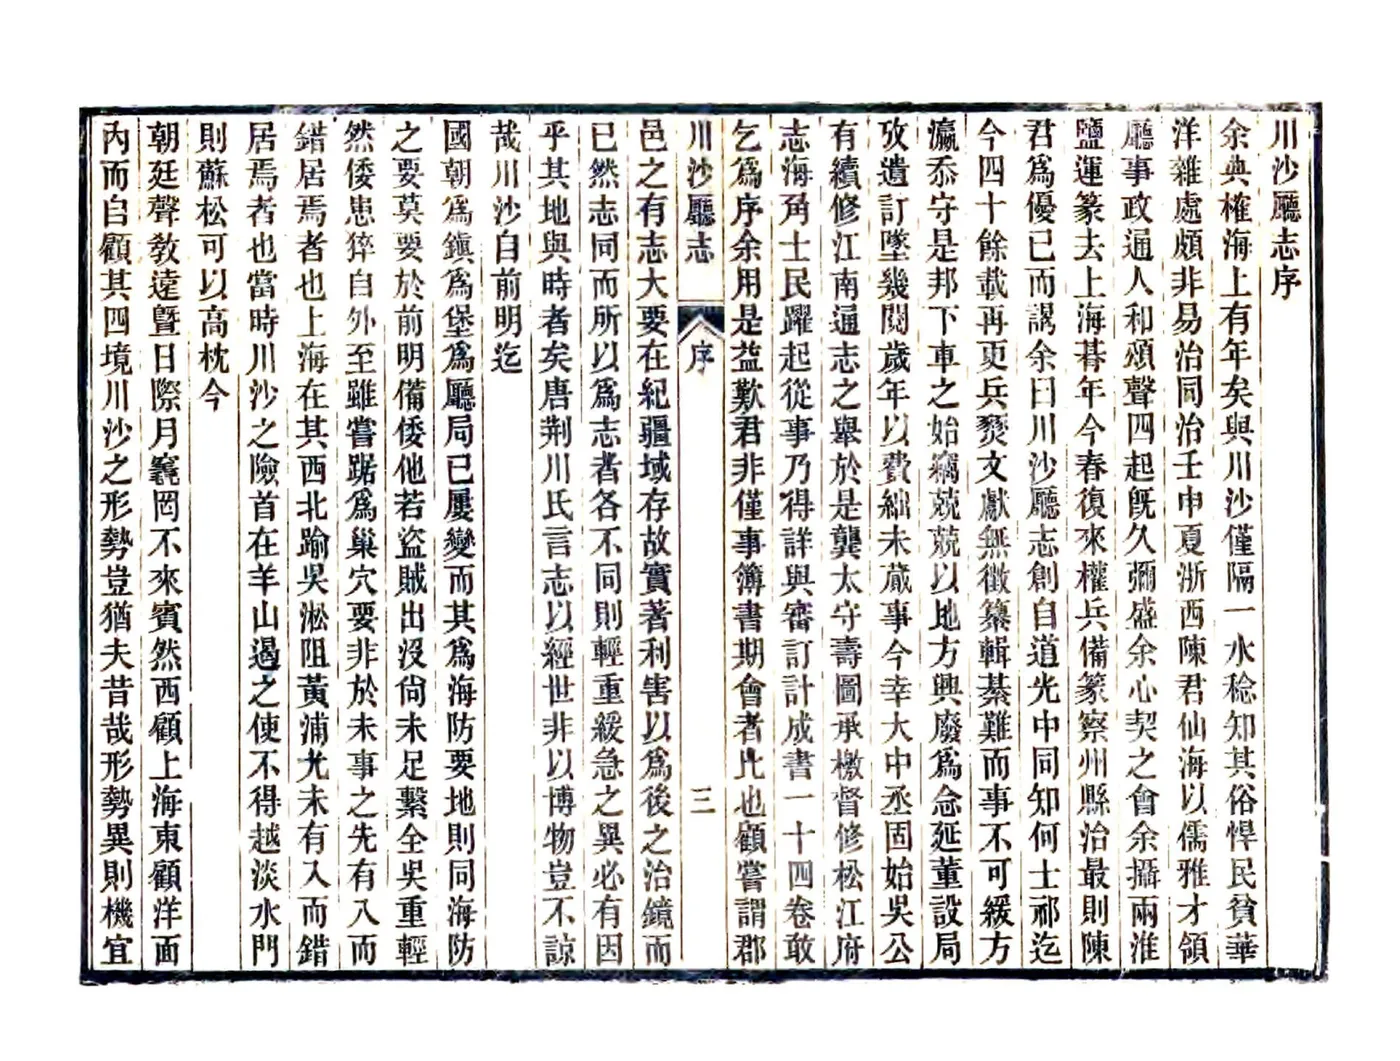 川沙廳志序
余典榷海上有年矣與川沙僅隔一水稔知其俗悍民貧華
洋雜處頗非易治同治壬申夏浙西陳君仙海以儒雅才領
廳事政通人和頌聲四起旣久彌盛余心契之會余攝兩淮
鹽運篆去上海朞年今春復來權兵備篆察州縣治最則陳
君爲優已而謁余曰川沙廳志創自道光中同知何士祁迄
今四十餘載再更兵燹文獻無徵纂輯綦難而事不可緩方
瀛忝守是邦下車之始竊兢兢以地方興廢爲念延董設局
攷遺訂墜幾閱歲年以費絀未蕆事今幸大中丞固始吳公
有續修江南通志之舉於是龔太守壽圖承檄督修松江府
志海角士民躍起從事乃得詳與審訂計成書一十四卷敢
乞爲序余用是益歎君非僅事簿書期會者比也顧嘗謂郡
川沙廳志
序
三
邑之有志大要在紀疆域存故實著利害以爲後之治鏡而
已然志同而所以爲志者各不同則輕重緩急之異必有因
乎其地與時者矣唐荆川氏言志以經世非以博物豈不諒
哉川沙自前明迄
國朝爲鎭爲堡爲廳局已屢變而其爲海防要地則同海防
之要莫要於前明備倭他若盜賊出沒尙未足繫全吳重輕
然倭患猝自外至雖嘗踞爲巢穴要非於未事之先有入而
錯居焉者也上海在其西北踰吳淞阻黃浦尤未有入而錯
居焉者也當時川沙之險首在羊山遏之使不得越淡水門
則蘇松可以高枕今
朝廷聲敎遠曁日際月竁罔不來賓然西顧上海東顧洋面
內而自顧其四境川沙之形勢豈猶夫昔哉形勢異則機宜